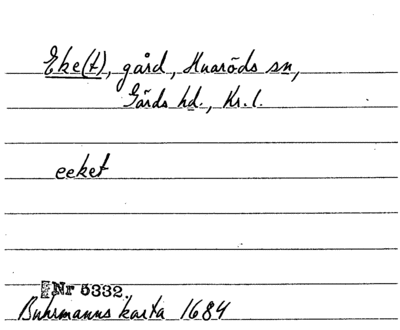 Eke(t), gård, Huaröds sn,
Gärds hd., Kr. l.
eeket
Nr 5332.
Buhrmanns karta 1684